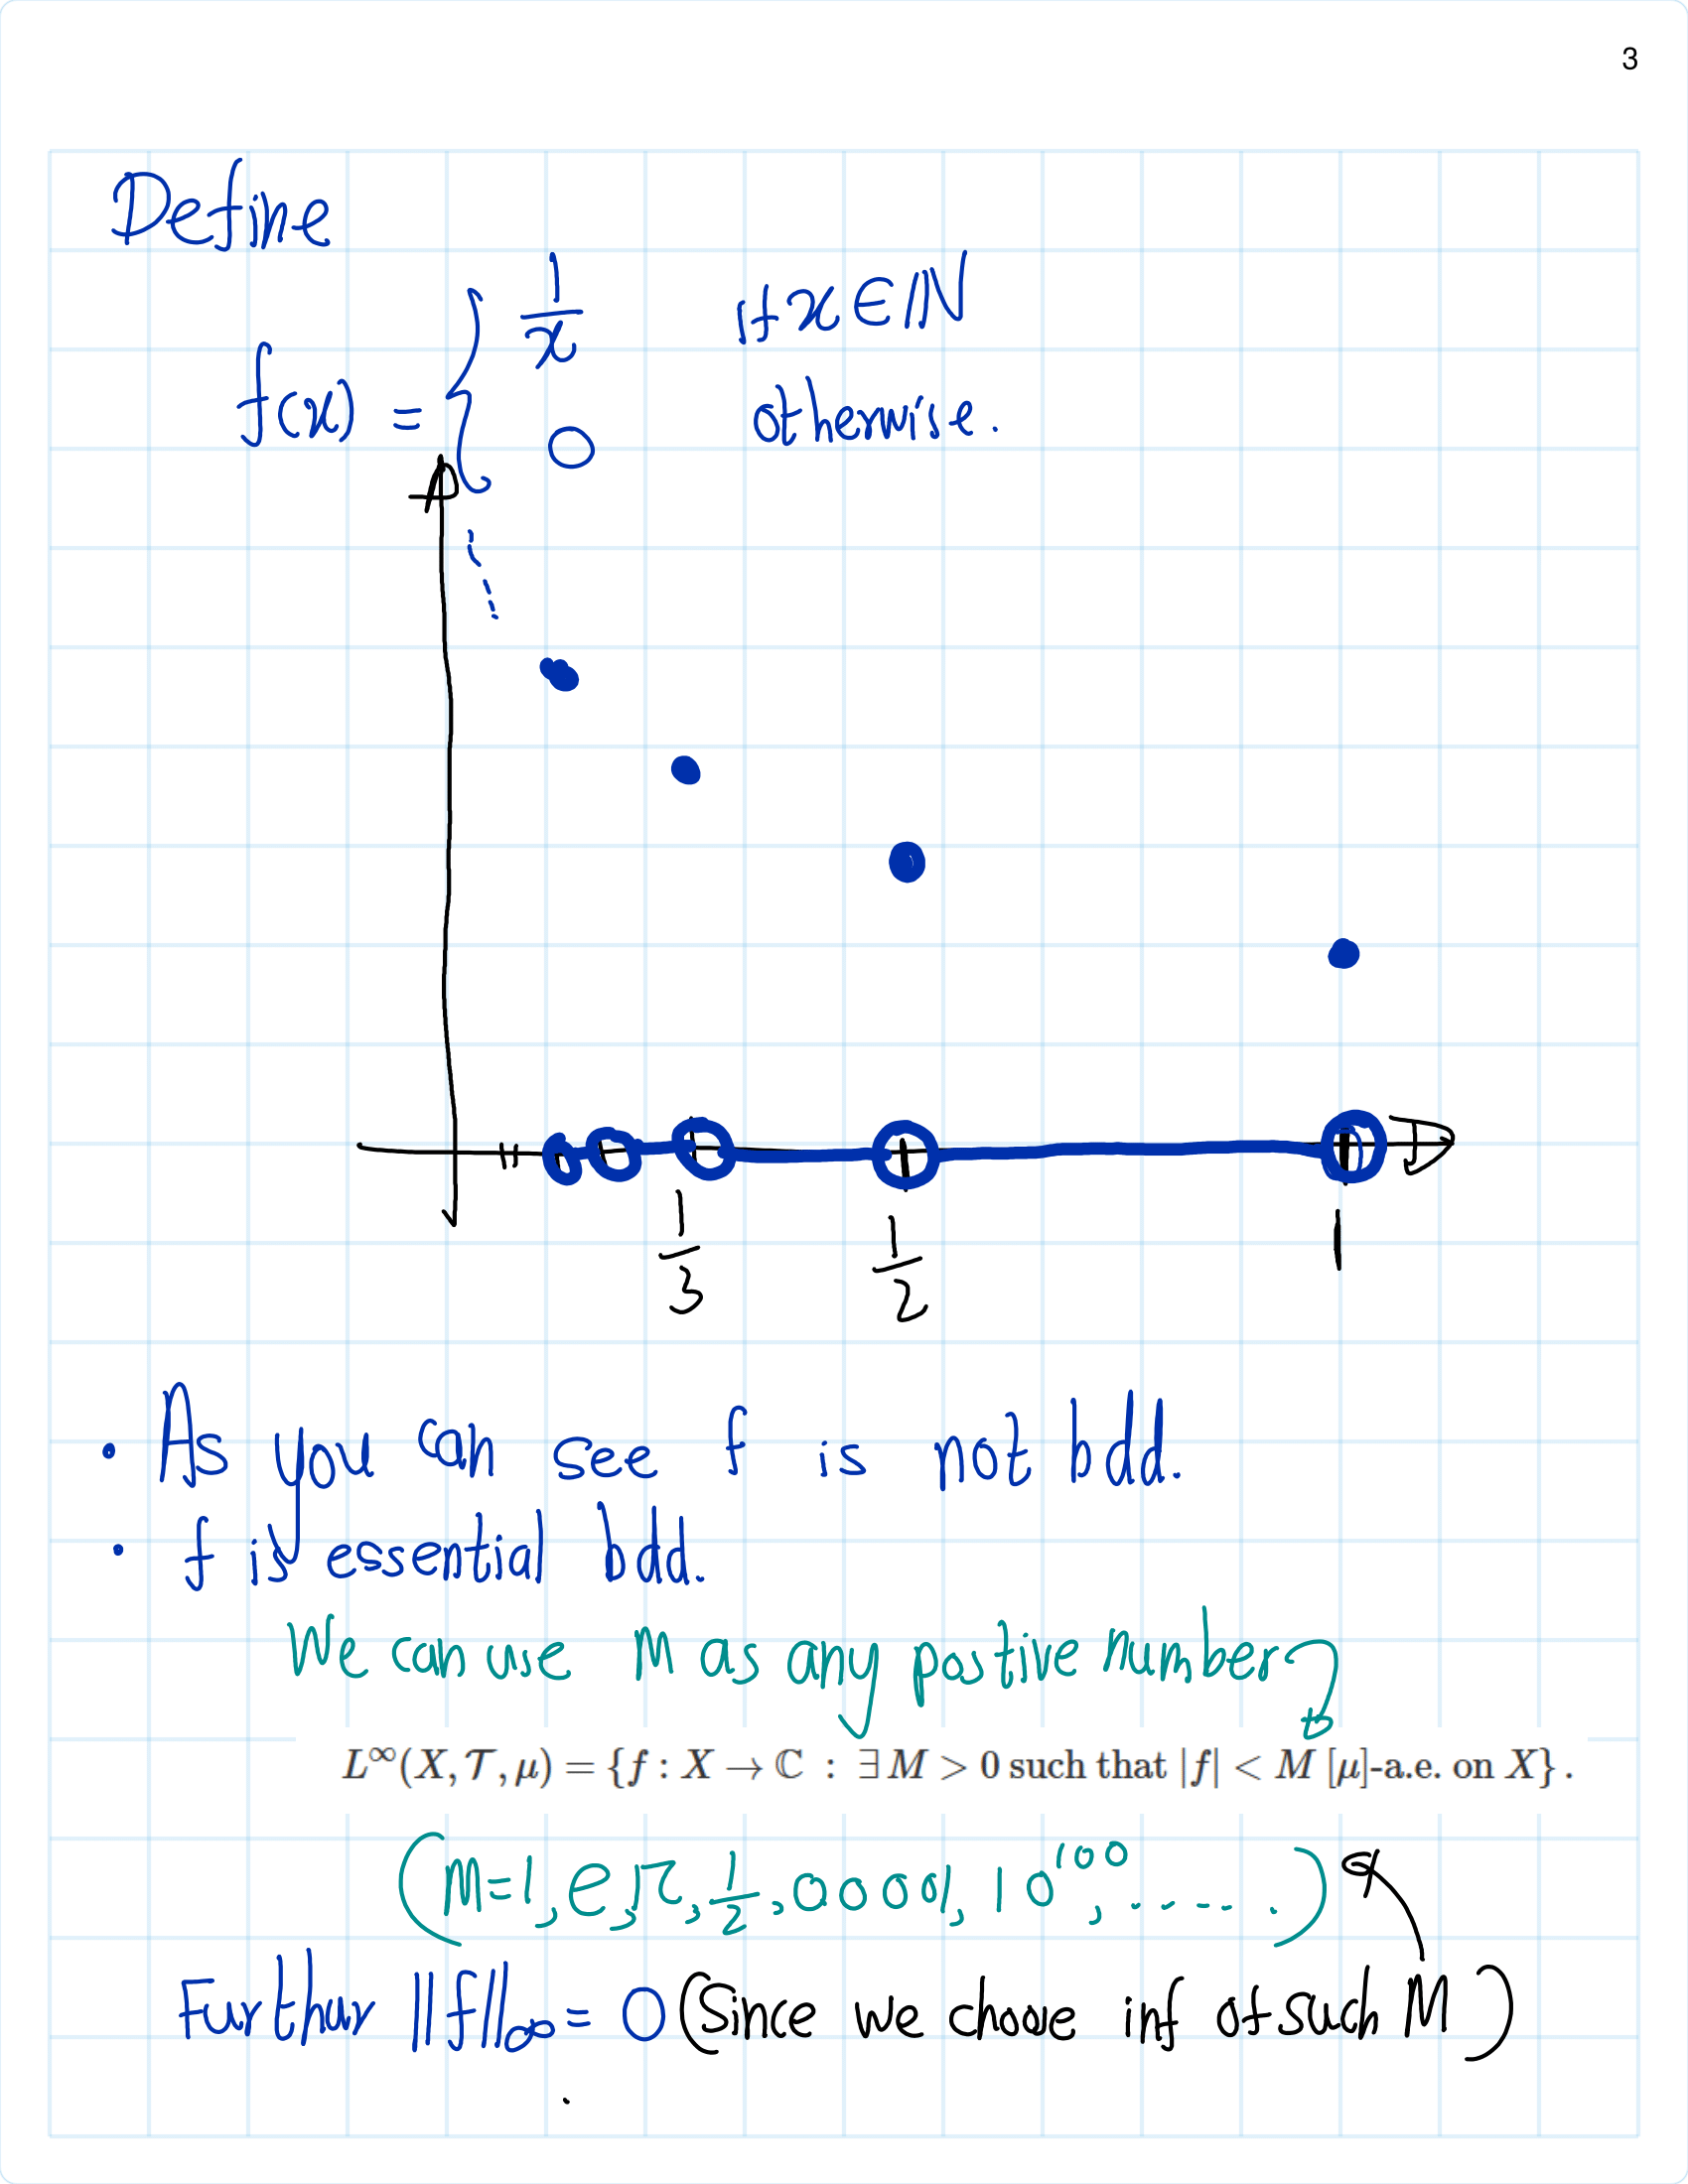 3
Define
f(x) = { 1/x if x ∈ ℕ
0 otherwise.
1/3 1/2 1
• As you can see f is not bdd.
• f is essential bdd.
We can use M as any postive number
L^∞(X, 𝒯, μ) = {f : X → ℂ : ∃ M > 0 such that |f| < M [μ]-a.e. on X} .
(M=1, e, π, 1/2, .00001, 10^100, ......)
Further ||f||_∞ = 0 (Since we choose inf of such M)